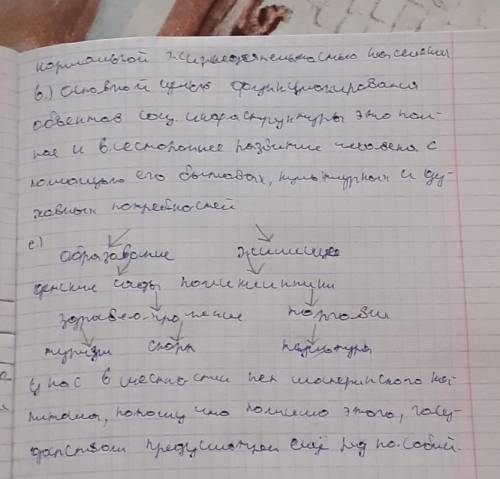 нормальной жизнедеятельностью населения
в.) Основной целью функционирования
объектов соц. инфраструктуры это пол-
ное и всестороннее развитие человека с
помощью его бытовых, культурных и ду-
ховных потребностей
с)
образование жилище
детские сады поликлиники
здравоохранение торговля
туризм спорт культура
У нас в местности нет материнского ка-
питала, потому что помимо этого, госу-
дарством предусмотрен ещё ряд пособий.